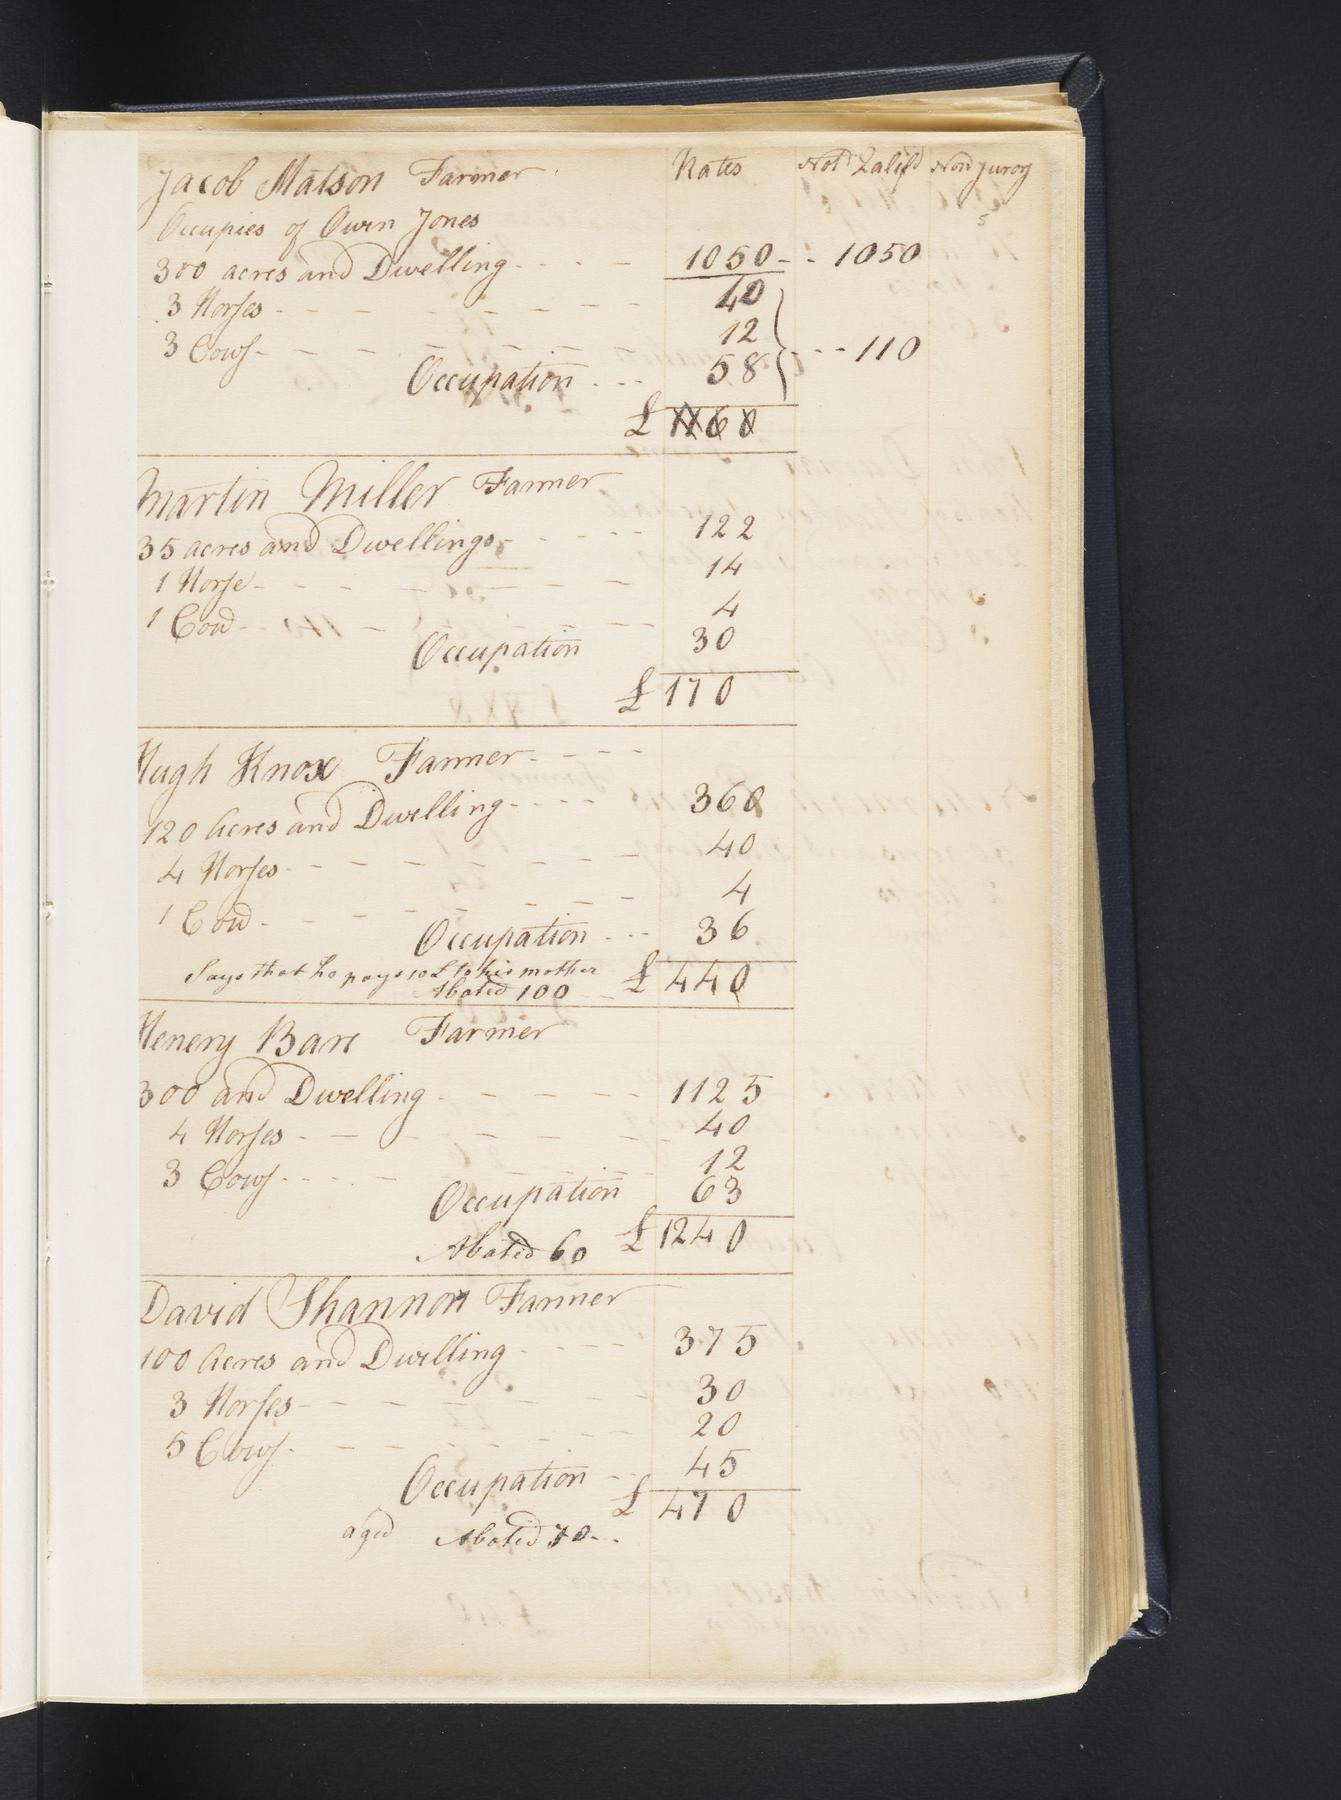 Jacob Matson Farmer Rates Not Qalifd Non Juror
Occupies of Owen Jones
300 acres and Dwelling 1050 1050
3 Horses 40
3 Cows 12
Occupation 58 110
£ 1160
Martin Miller Farmer
35 acres and Dwellings 122
1 Horse 14
1 Cow 4
Occupation 30
£ 170
Hugh Knox Farmer
120 Acres and Dwelling 360
4 Horses 40
1 Cow 4
Occupation 36
Says that he pays 10£ to his mother £ 440
Abated 100
Henery Bare Farmer
300 and Dwelling 1125
4 Horses 40
3 Cows 12
Occupation 63
Abated 60 £ 1240
David Shannon Farmer
100 Acres and Dwelling 375
3 Horses 30
5 Cows 20
Occupation 45
£ 470
aged Abated 70